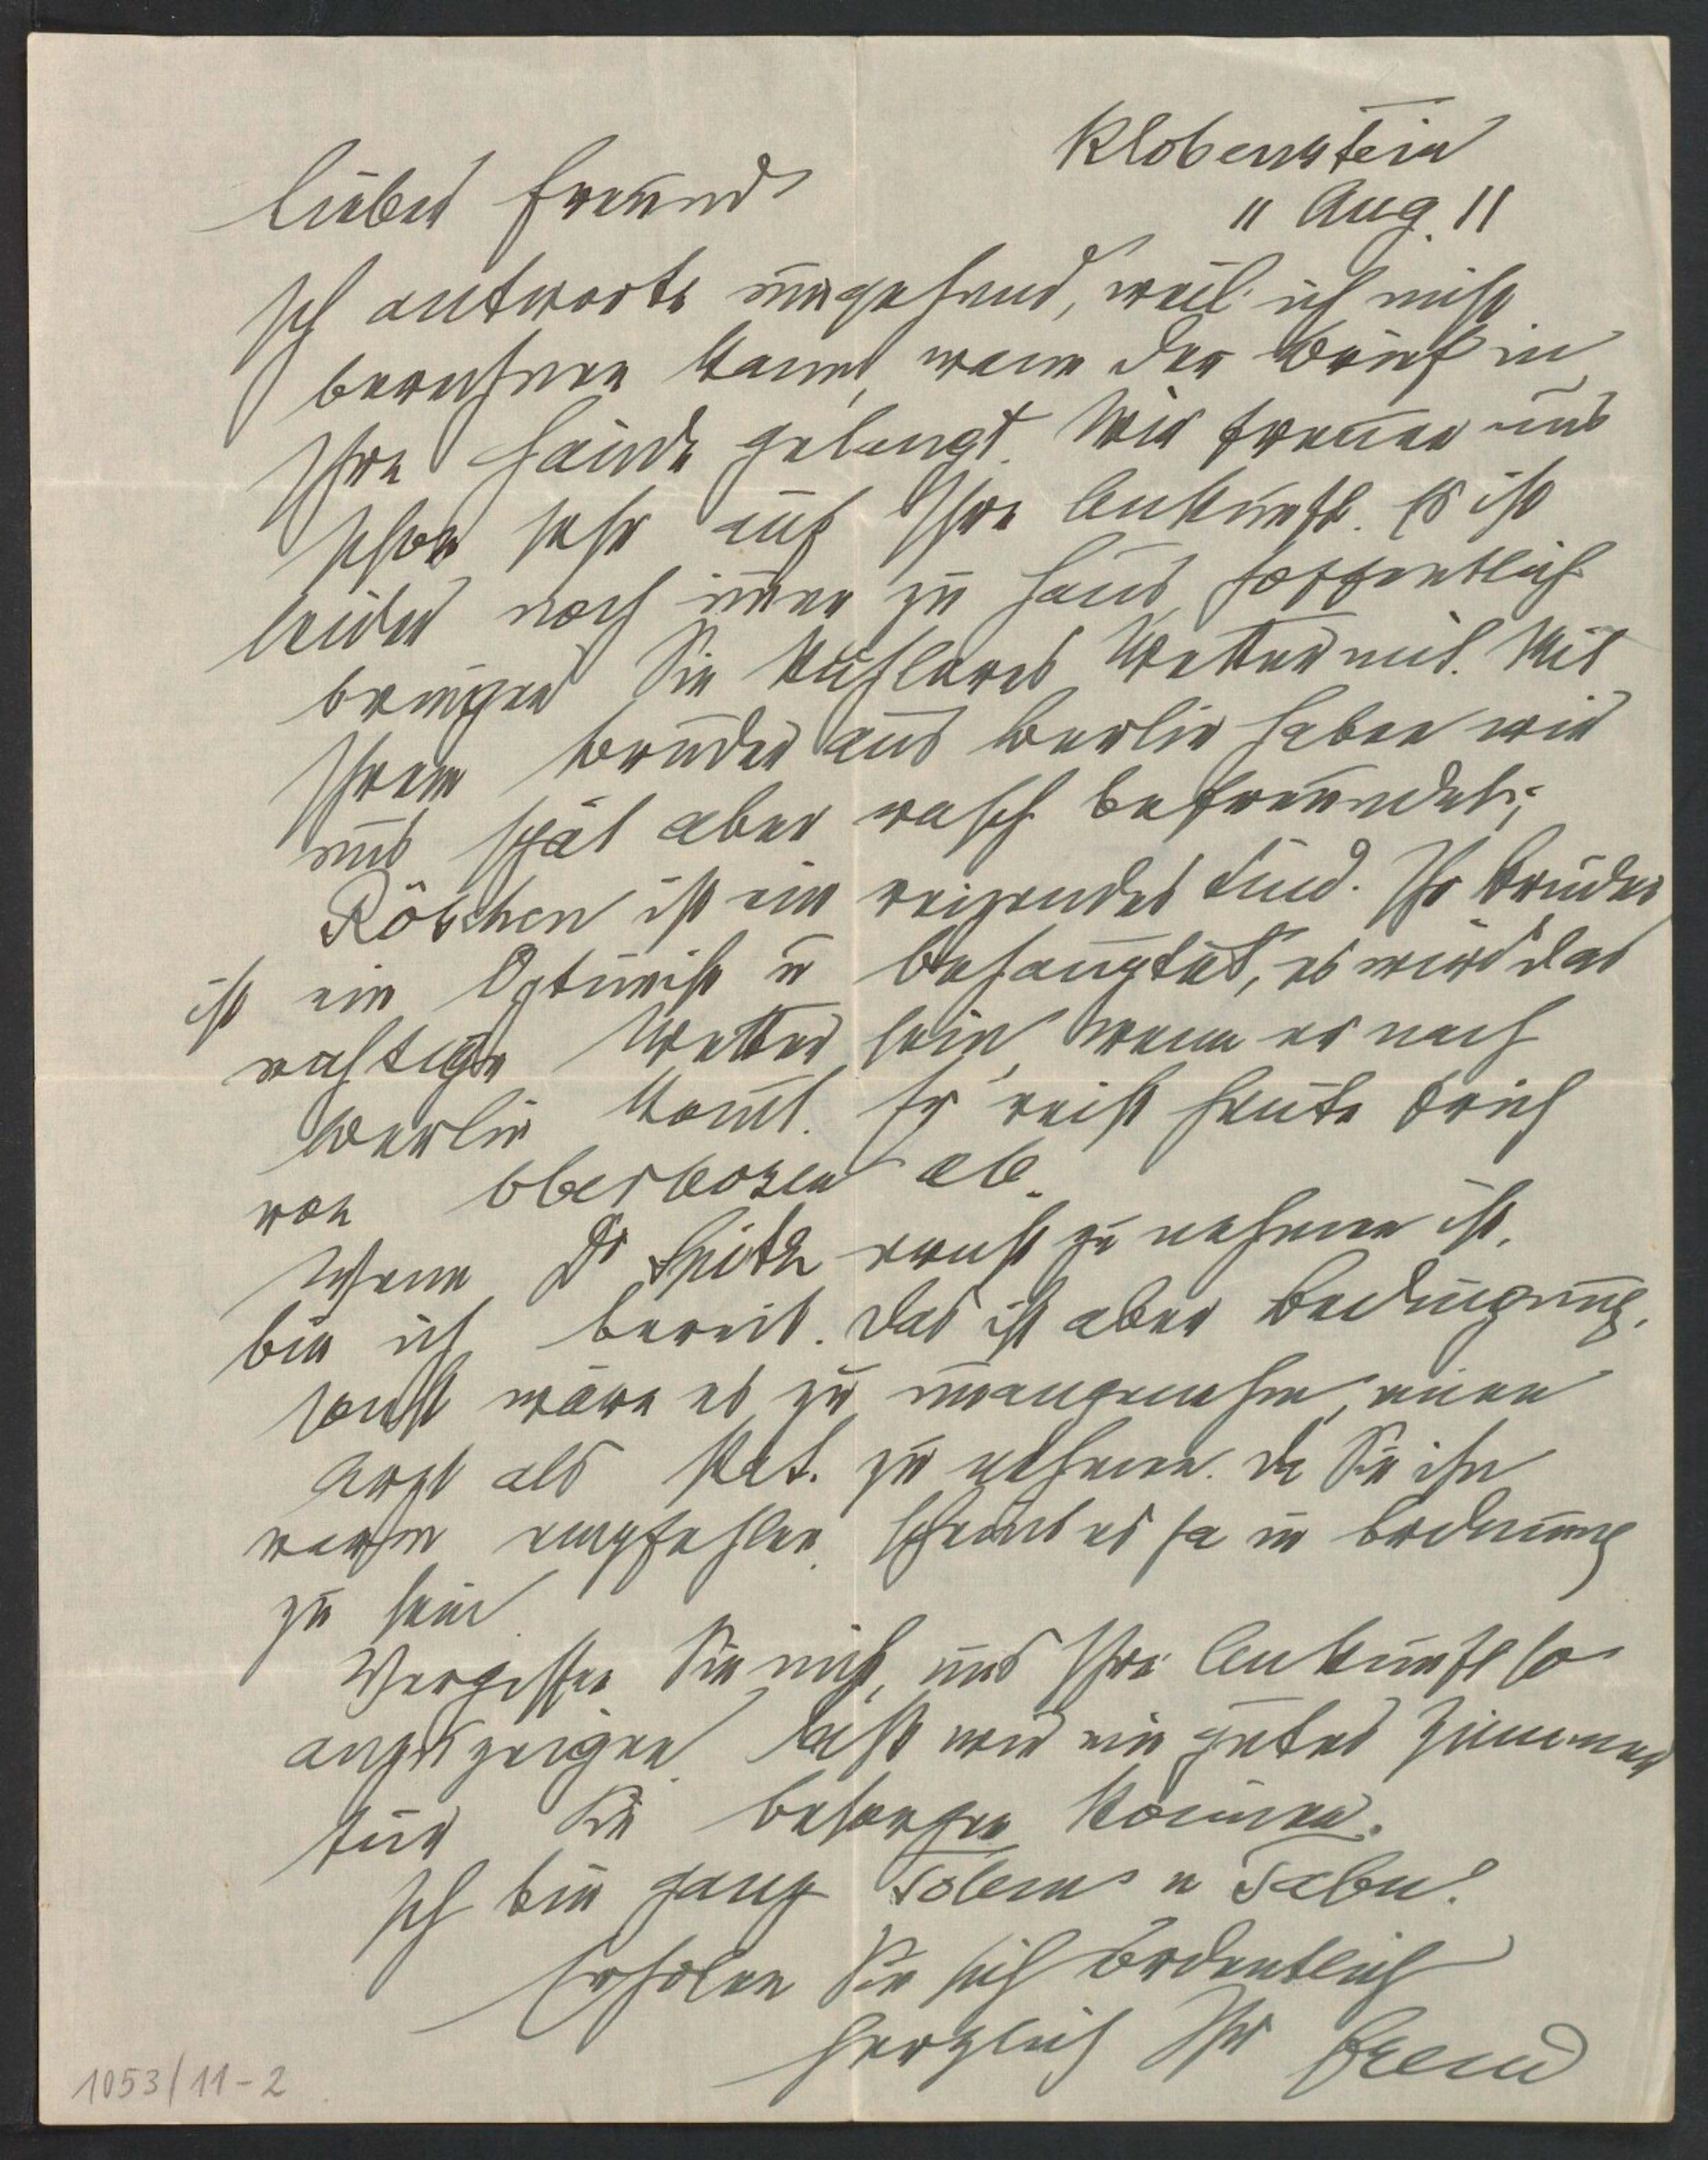 Klobenstein
11 Aug 11
Lieber Freund
Ich antworte umgehend, weil ich nicht
berechnen kann, wann der Brief in
Ihre Hände gelangt. Wir freuen uns
schon sehr auf Ihre Ankunft. Es ist
leider noch immer zu heiß, hoffentlich
bringen Sie kühleres Wetter mit. Mit
Ihrem Bruder aus Berlin haben wir
uns spät aber rasch befreundet;
Röschen ist ein reizendes Kind. Ihr Bruder
ist ein Optimist u behauptet, es wird das
richtige Wetter sein, wenn er nach
Berlin kommt. Er reist heute früh
von Oberbozen ab.
Wenn Dr Spitz ernst zu nehmen ist,
bin ich bereit. Das ist aber Bedingung,
sonst wäre es zu unangenehm, einen
Arzt als Pat. zu nehmen. Da Sie ihn
warm empfehlen, scheint es ja in Ordnung
zu sein.
Vergessen Sie nicht, uns Ihre Ankunft so
anzuzeigen, daß wir ein gutes Zimmer
für Sie besorgen können.
Ich bin ganz Totem u Tabu.
Erholen Sie sich ordentlich
Herzlich Ihr Freud
1053/11-2